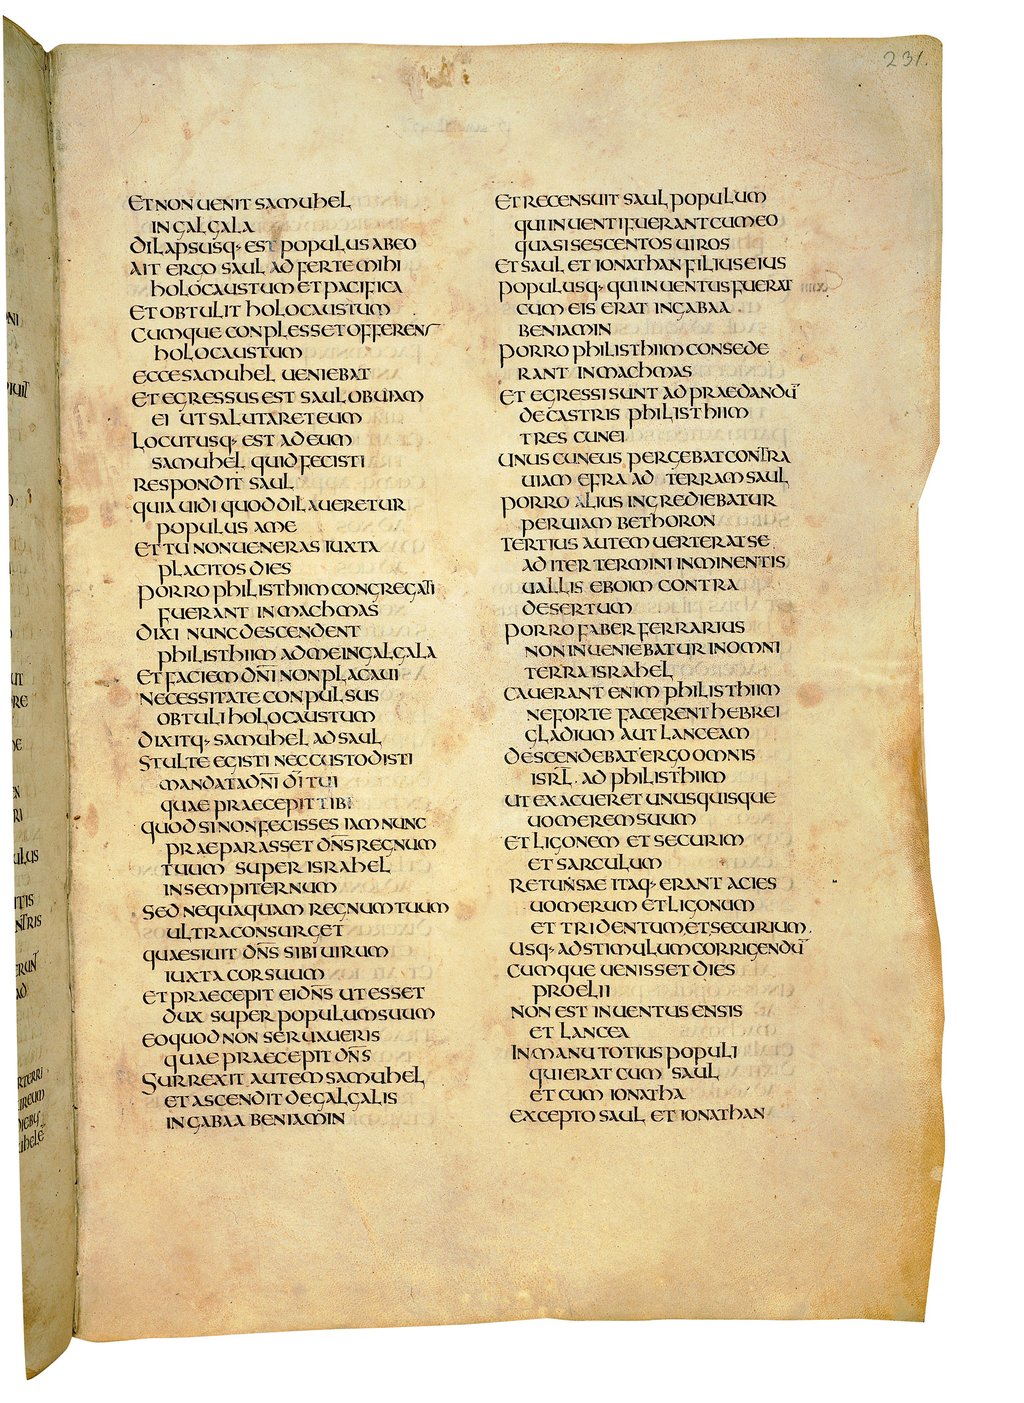 231.
ET NON UENIT SAMUHEL
IN GALGALA
DILAPSUSQ· EST POPULUS AB EO
AIT ERGO SAUL ADFERTE MIHI
HOLOCAUSTUM ET PACIFICA
ET OBTULIT HOLOCAUSTUM
CUMQUE CONPLESSET OFFERENS
HOLOCAUSTUM
ECCE SAMUHEL UENIEBAT
ET EGRESSUS EST SAUL OBUIAM
EI UT SALUTARET EUM
LOCUTUSQ· EST AD EUM
SAMUHEL QUID FECISTI
RESPONDIT SAUL
QUIA UIDI QUOD DILAUERETUR
POPULUS A ME
ET TU NON UENERAS IUXTA
PLACITOS DIES
PORRO PHILISTHIIM CONGREGATI
FUERANT IN MACHMAS
DIXI NUNC DESCENDENT
PHILISTHIIM AD ME IN GALGALA
ET FACIEM DN̄I NON PLACAUI
NECESSITATE CONPULSUS
OBTULI HOLOCAUSTUM
DIXITQ· SAMUHEL AD SAUL
STULTE EGISTI NEC CUSTODISTI
MANDATA DN̄I DĪ TUI
QUAE PRAECEPIT TIBI
QUOD SI NON FECISSES IAM NUNC
PRAEPARASSET DN̄S REGNUM
TUUM SUPER ISRAHEL
IN SEMPITERNUM
SED NEQUAQUAM REGNUM TUUM
ULTRA CONSURGET
QUAESIUIT DN̄S SIBI UIRUM
IUXTA COR SUUM
ET PRAECEPIT EI DN̄S UT ESSET
DUX SUPER POPULUM SUUM
EO QUOD NON SERUAUERIS
QUAE PRAECEPIT DN̄S
SURREXIT AUTEM SAMUHEL
ET ASCENDIT DE GALGALIS
IN GABAA BENIAMIN
ET RECENSUIT SAUL POPULUM
QUI INUENTI FUERANT CUM EO
QUASI SESCENTOS UIROS
ET SAUL ET IONATHAN FILIUS EIUS
POPULUSQ· QUI INUENTUS FUERAT
CUM EIS ERAT IN GABAA
BENIAMIN
PORRO PHILISTHIIM CONSEDE
RANT IN MACHMAS
ET EGRESSI SUNT AD PRAEDANDŪ
DE CASTRIS PHILISTHIIM
TRES CUNEI
UNUS CUNEUS PERGEBAT CONTRA
UIAM EFRA AD TERRAM SAUL
PORRO ALIUS INGREDIEBATUR
PER UIAM BETHORON
TERTIUS AUTEM UERTERAT SE
AD ITER TERMINI INMINENTIS
UALLIS EBOIM CONTRA
DESERTUM
PORRO FABER FERRARIUS
NON INUENIEBATUR IN OMNI
TERRA ISRAHEL
CAUERANT ENIM PHILISTHIIM
NE FORTE FACERENT HEBREI
GLADIUM AUT LANCEAM
DESCENDEBAT ERGO OMNIS
ISRL̄. AD PHILISTHIIM
UT EXACUERET UNUSQUISQUE
UOMEREM SUUM
ET LIGONEM ET SECURIM
ET SARCULUM
RETUNSAE ITAQ· ERANT ACIES
UOMERUM ET LIGONUM
ET TRIDENTUM. ET SECURIUM.
USQ· AD STIMULUM CORRIGENDŪ
CUMQUE UENISSET DIES
PROELII
NON EST INUENTUS ENSIS
ET LANCEA
IN MANU TOTIUS POPULI
QUI ERAT CUM SAUL
ET CUM IONATHA
EXCEPTO SAUL ET IONATHAN